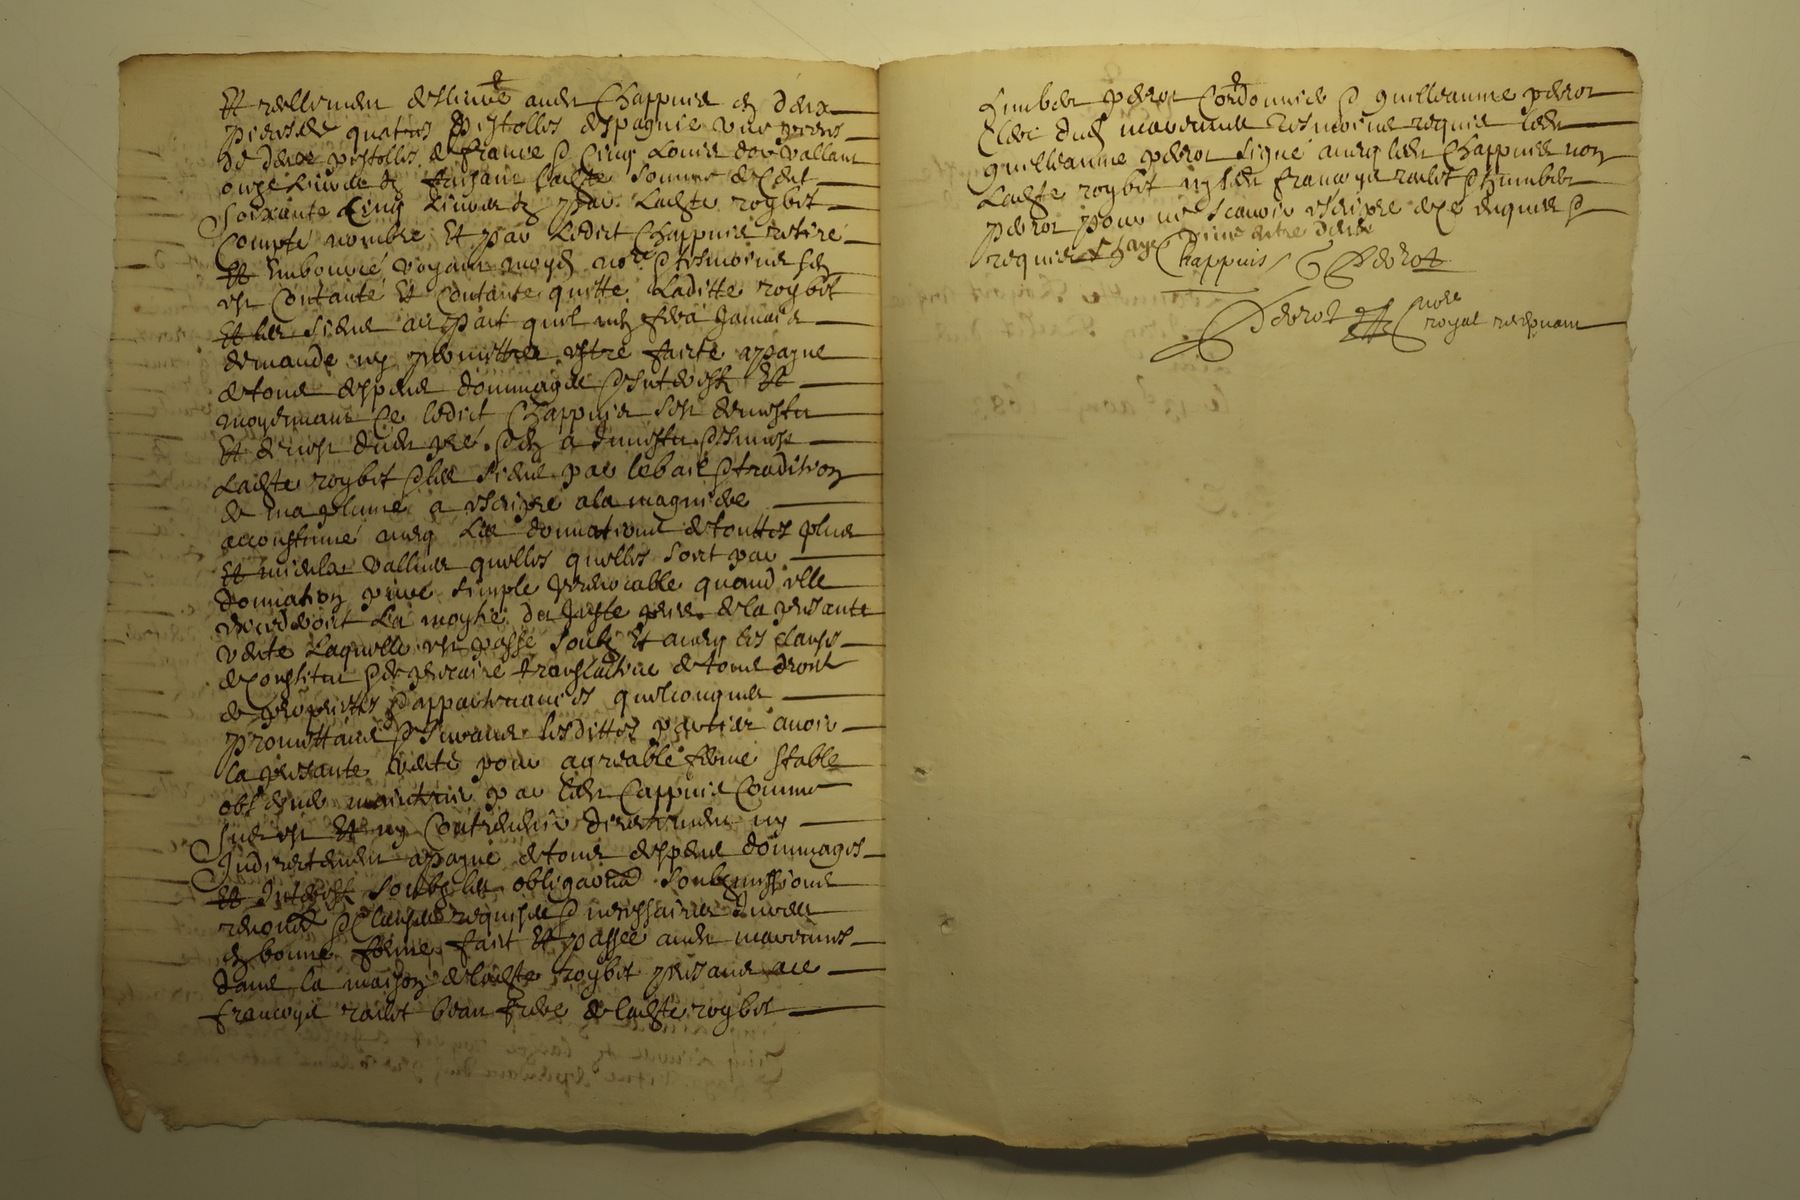 Et reellement deslivré audit Chappuis en deux
pieces de quatres pistolles despagnie une piece
de deux pistolles de france & cinq Louis dor vallant
onze livres & faisant ladite somme de Cent
soixante cinq livres par ladite roybet
Compté nombré Et par ledict Chappuis retiré
Et emboursé voyant moyd nore & tesmoins sen
est Contanté Et Contante quitte Laditte roybet
Et les siens au pact quil nen fera jamais
demande ny permettra estre faicte a payne
de tous despens dommages & interestz Et
moyennant Ce ledict Chappuis sest demestu
Et devest dudit pré & en a investu & saisie
Ladite roybet & les siens par le bail & tradition
de ma plume a escripre a la maniere
accoustumé avec Les donnations de touttes plus
Et mieulx vallues quelles quelles soit par
donnation pure simple Irrevocable quand elle
excederoit La moytié du Juste prix de la presante
vente Laquelle est passé soubz Et avec les clauses
de constitut & de precaire translative de tous droict
de proprietés & appartenances quelconques
promettans & jurans lesdittes parties avoir
la presante vente pour agreable ferme stable
observer maintenir par ledit Cappuis Comme
sus est Et ny Contrevenir directement ny
Indirectement a payne de tous despens dommages
Et Interestz soubz les obligaons soubzmissions
renonons & clauses requises & necessaires
en bonne forme fait Et passée audit
dans la maison de ladite roybet presans ace
francoys raclet beau frere de ladite roybet
humbert perrot Cordonnier & guilleaume perrot
Clerc dud tesmoins requis ledit
guilleaume perrot signé avec ledit Chappuis non
Ladite roybet ny ledit francoys raclet & humbert
perrot pour ne scavoir escripre de ce enquis &
requis
Chappuis G Perrot
Perrot nore
royal recepvant